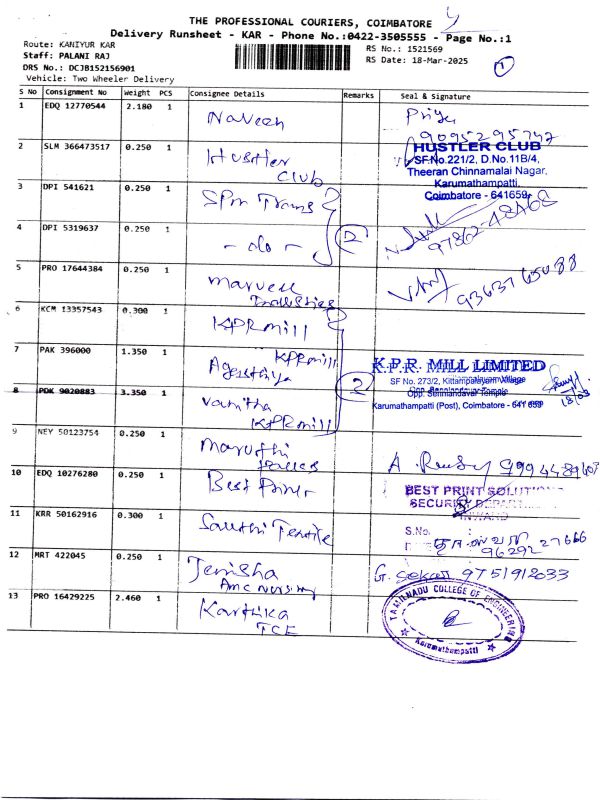 THE PROFESSIONAL COURIERS, COIMBATORE
Delivery Runsheet - KAR - Phone No.:0422-3505555 - Page No.:1
Route: KANIYUR KAR
RS No.: 1521569
Staff: PALANI RAJ
RS Date: 18-Mar-2025
DRS No.: DCJB152156901
Vehicle: Two Wheeler Delivery
1
S No Consignment No Weight PCS Consignee Details Remarks Seal & Signature
1 EDQ 12770544 2.180 1 Naveen Priya
9095295747
2 SLM 366473517 0.250 1 Hustler Club
HUSTLER CLUB
SF.No.221/2, D.No.11B/4,
Theeran Chinnamalai Nagar,
Karumathampatti,
Coimbatore - 641659
3 DPI 541621 0.250 1 SPM Trans
4 DPI 5319637 0.250 1 - do - 2
5 PRO 17644384 0.250 1 9363765088
6 KCM 13357543 0.300 1 KPR mill
7 PAK 396000 1.350 1 KPR mill
K.P.R. MILL LIMITED
SF No. 273/2, Kittampalayam Village
Opp. Sennandavar Temple
Karumathampatti (Post), Coimbatore - 641 659
18/03
8 PDK 9020883 3.350 1 Vanitha KPR mill 2
9 NEY 50123754 0.250 1 Maruthi
10 EDQ 10276280 0.250 1 Best Print
BEST PRINT SOLUT
SECURITY DEPART
INWARD
S.No.
11 KRR 50162916 0.300 1 Sakthi Textile
96292 27666
12 MRT 422045 0.250 1 Jenisha
G. Sekar 9751912033
13 PRO 16429225 2.460 1 Karthika
TCE
TAMILNADU COLLEGE OF ENGINEERING
Karumathampatti